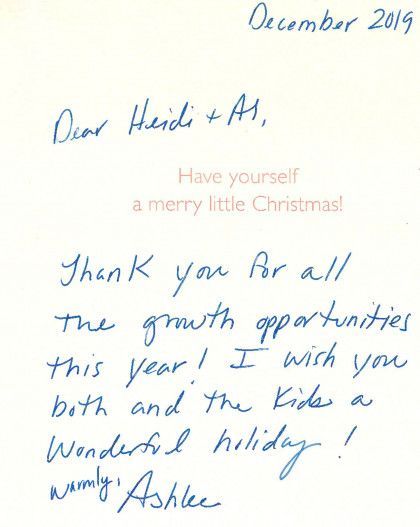 December 2019
Dear Heidi + Al,
Have yourself
a merry little Christmas!
Thank you for all
the growth opportunities
this year! I wish you
both and the kids a
wonderful holiday!
warmly,
Ashlee